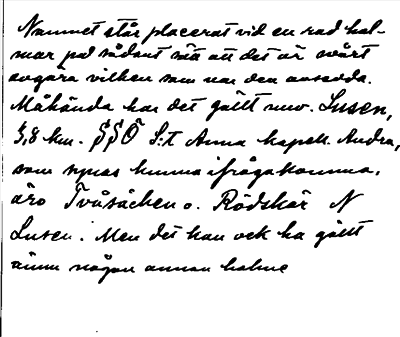 Namnet står placerat vid en rad hol-
mar på sådant sätt att det är svårt
avgöra vilken som var den avsedda.
Måhända har det gällt nuv. Lusen,
3,8 km. SSO S:t Anna kapell. Andra,
som synas kunna ifrågakomma,
äro Tvåsäcken o. Rödskär N
Lusen. Men det kan ock ha gällt
ännu någon annan holme